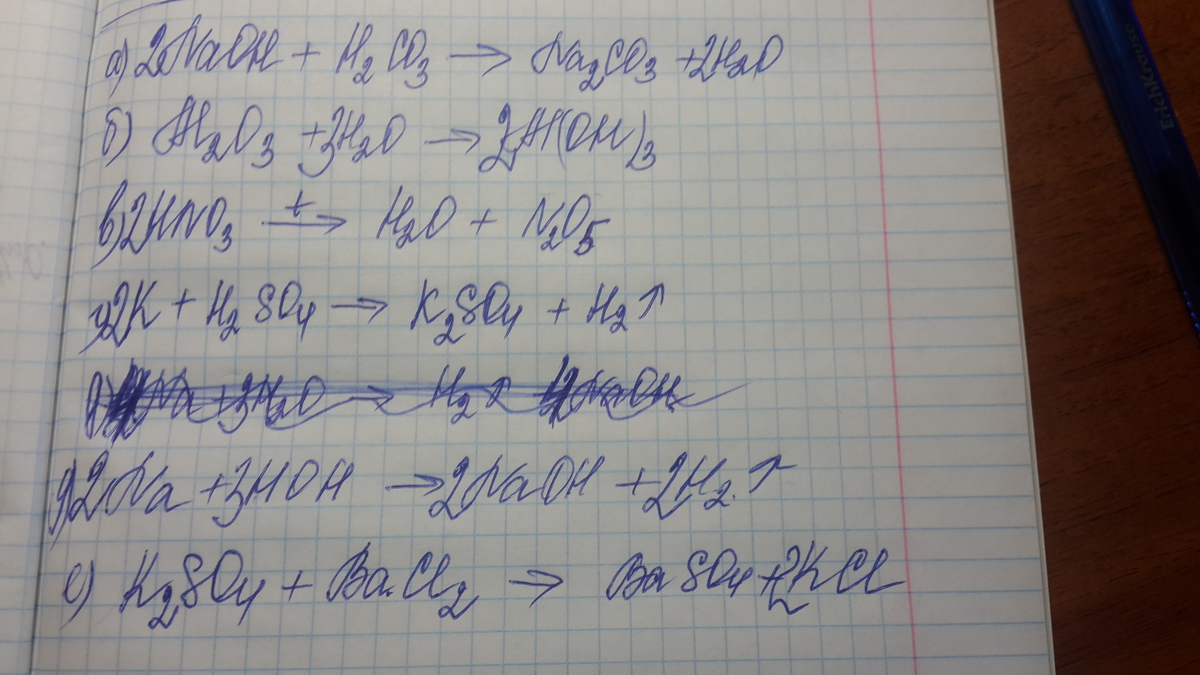 а) 2NaOH + H₂CO₃ → Na₂CO₃ + 2H₂O
б) Al₂O₃ + 3H₂O → 2Al(OH)₃
в) 2HNO₃ –t→ H₂O + N₂O₅
г) 2K + H₂SO₄ → K₂SO₄ + H₂↑
д) 2Na + 3HOH → 2NaOH + 2H₂↑
е) K₂SO₄ + BaCl₂ → BaSO₄ + 2KCl
ErichKrause